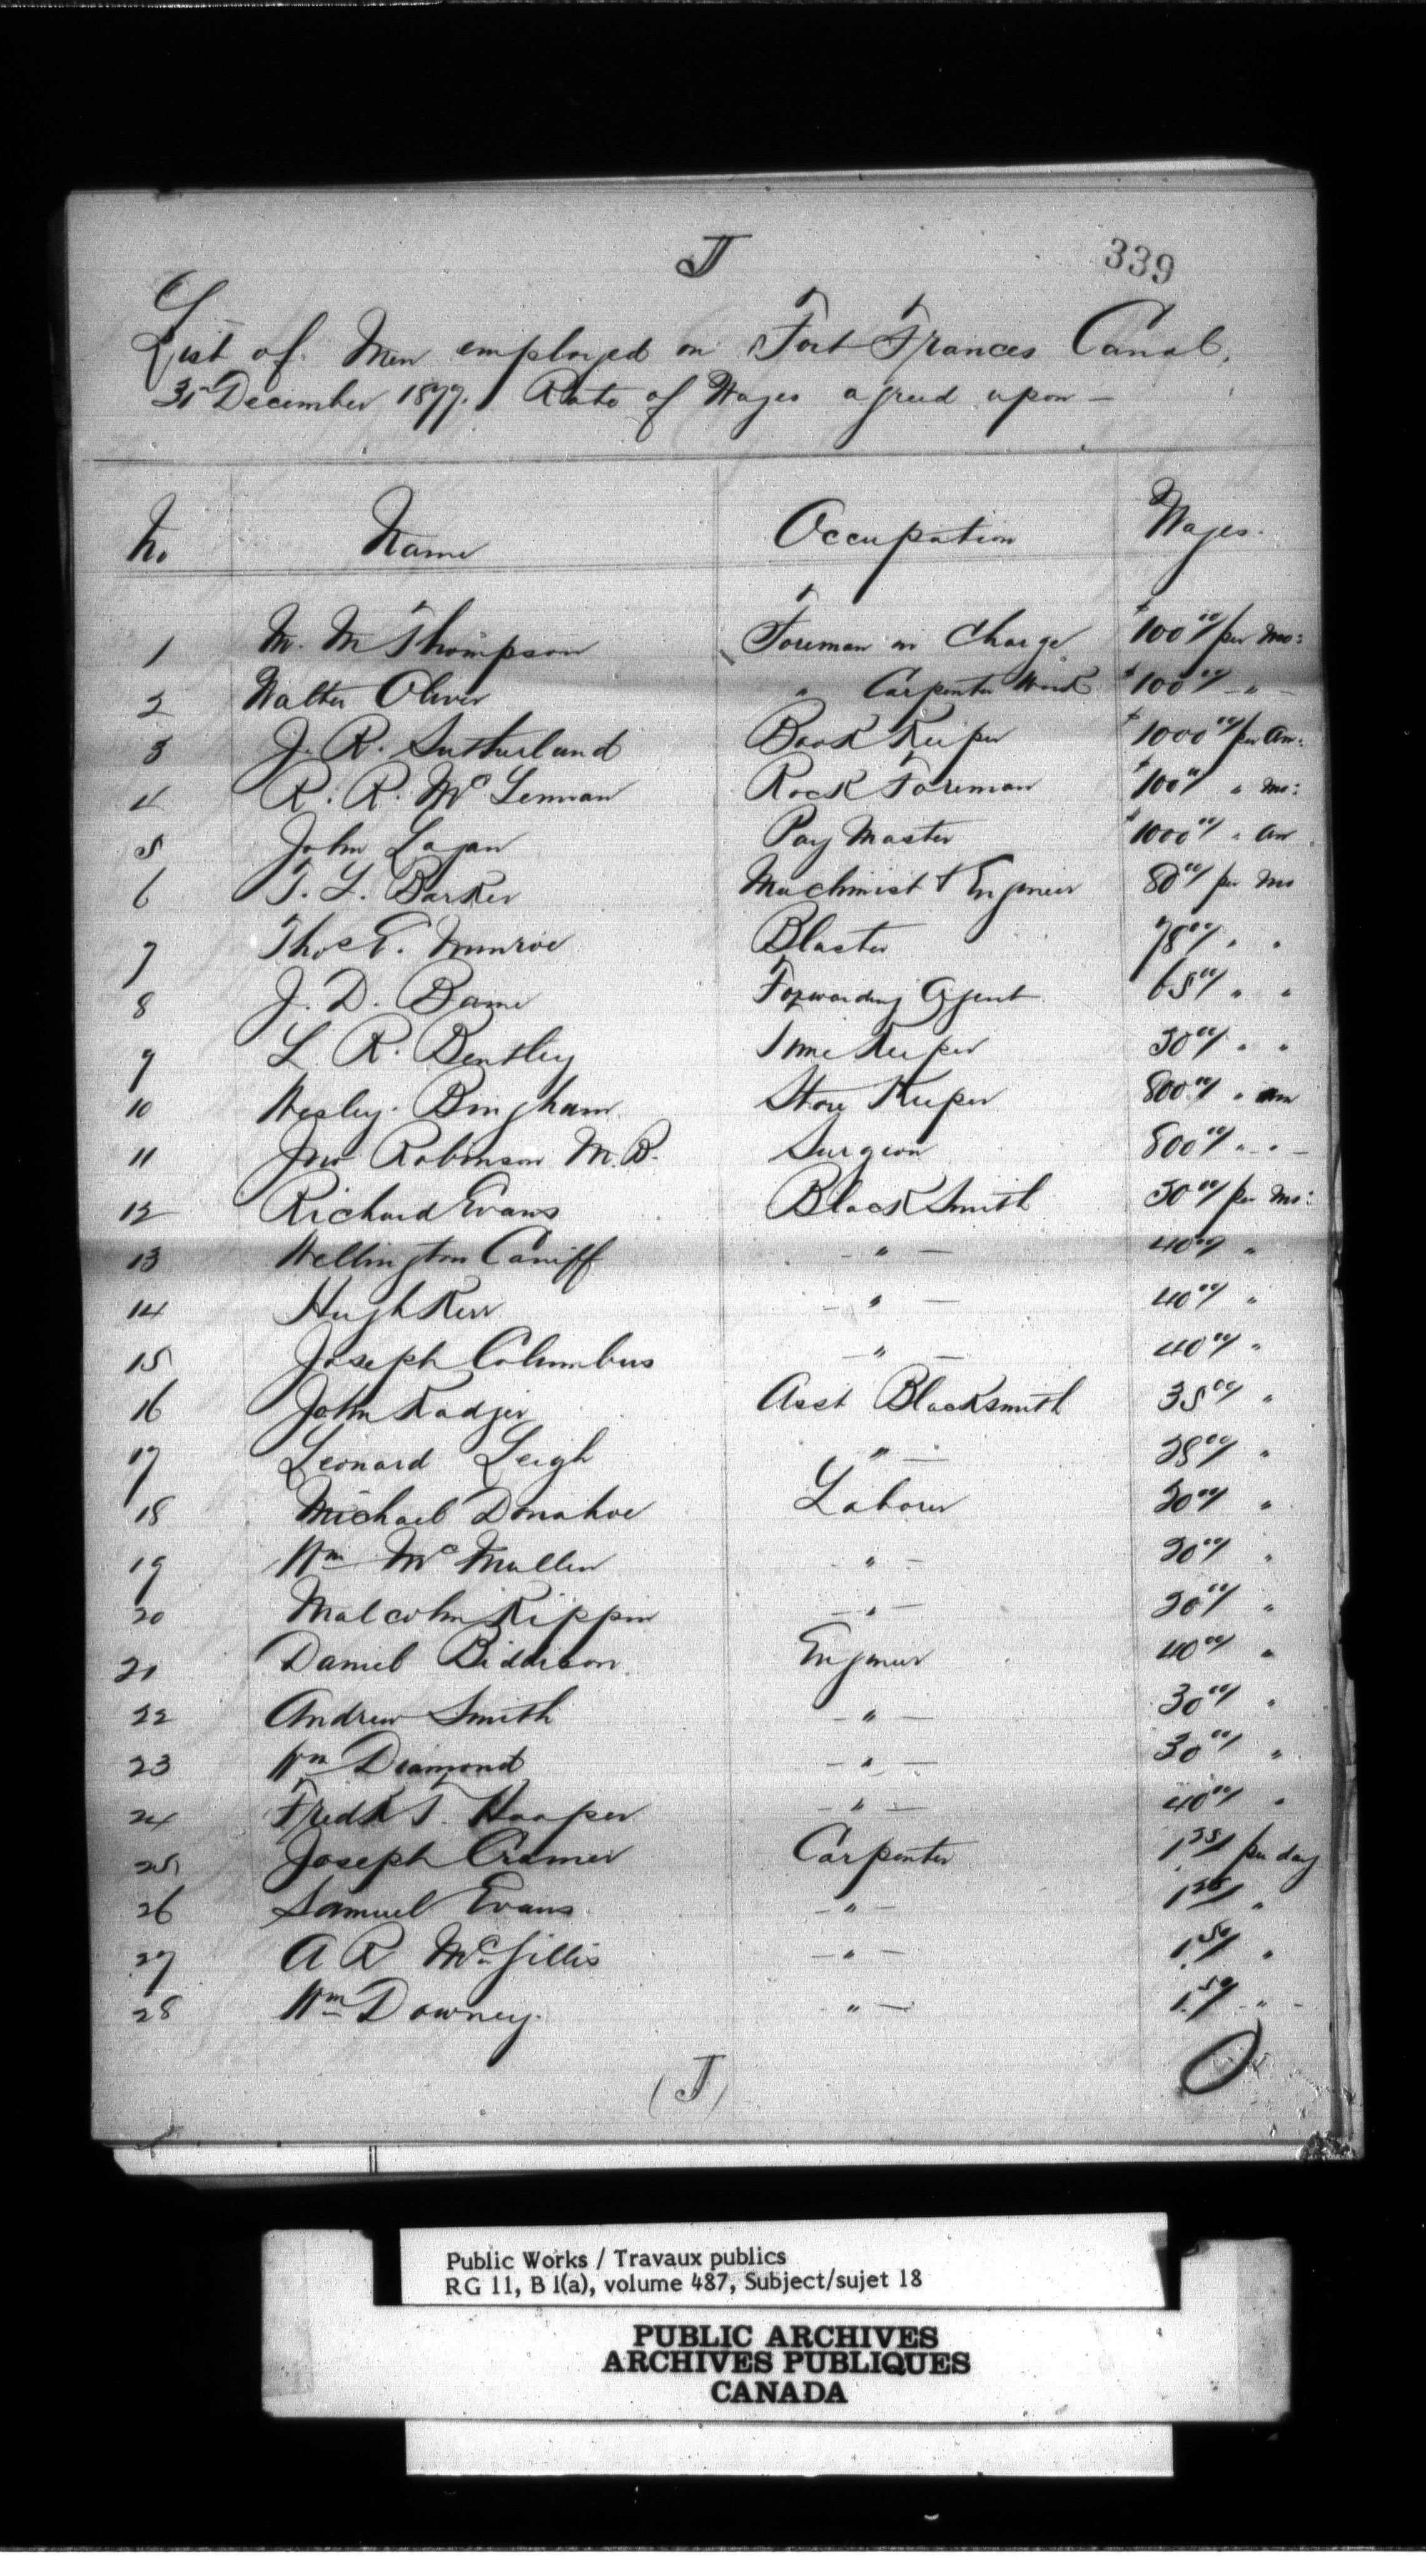 J
339
List of Men employed on Fort Frances Canal,
31st December 1877. Rate of Wages agreed upon —
No Name Occupation Wages.
1 M. M Thompson Foreman in Charge $100 00/ per Mo:
2 Walter Oliver " Carpenter Work $100 00/ - " -
3 J. R. Sutherland Book Keeper $1000 00/ per An:
4 R. R. McLennan Rock Foreman $100 00/ " Mo:
5 John Logan Pay Master $1000 00/ " An
6 T. L. Barker Machinist & Engineer 80 00/ per Mo
7 Thos E. Munroe Blaster 78 00/ " "
8 J. D. Bame Forwarding Agent 65 00/ " "
9 L R. Bentley Time Keeper 30 00/ " "
10 Wesley Bingham Store Keeper 800 00/ " an
11 Jno Robinson M.B. Surgeon 800 00/ " - " -
12 Richard Evans Black Smith 50 00/ per Mo:
13 Wellington Caniff - " - 40 00/ "
14 Hugh Kerr - " - 40 00/ "
15 Joseph Columbus - " - 40 00/ "
16 John Radger Asst Blacksmith 35 00/ "
17 Leonard Leigh " - 00/ "
18 Michael Donahoe Laborer 20 00/ "
19 Wm McMullen " - 20 00/ "
20 Malcolm Kippin - " - 00/ "
21 Daniel Biddison Engineer 40 00/ "
22 Andrew Smith - " - 30 00/ "
23 Wm Diamond - " - 30 00/ "
24 Fredk T. Hooper - " - 40 00/ "
25 Joseph Cramer Carpenter 1 25/ per day
26 Samuel Evans - " - 1 25/ "
27 A R McGillis - " - 1.50/ "
28 Wm Downey. " - 1.50/ - " -
(J)
Public Works / Travaux publics
RG 11, B 1(a), volume 487, Subject/sujet 18
PUBLIC ARCHIVES
ARCHIVES PUBLIQUES
CANADA